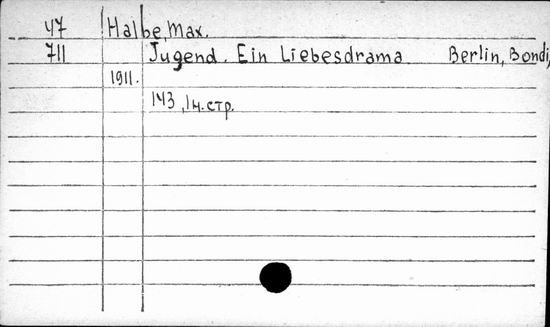 47 Halbe, Max.
711 Jugend. Ein Liebesdrama Berlin, Bondi,
1911.
143, 1 н. стр.